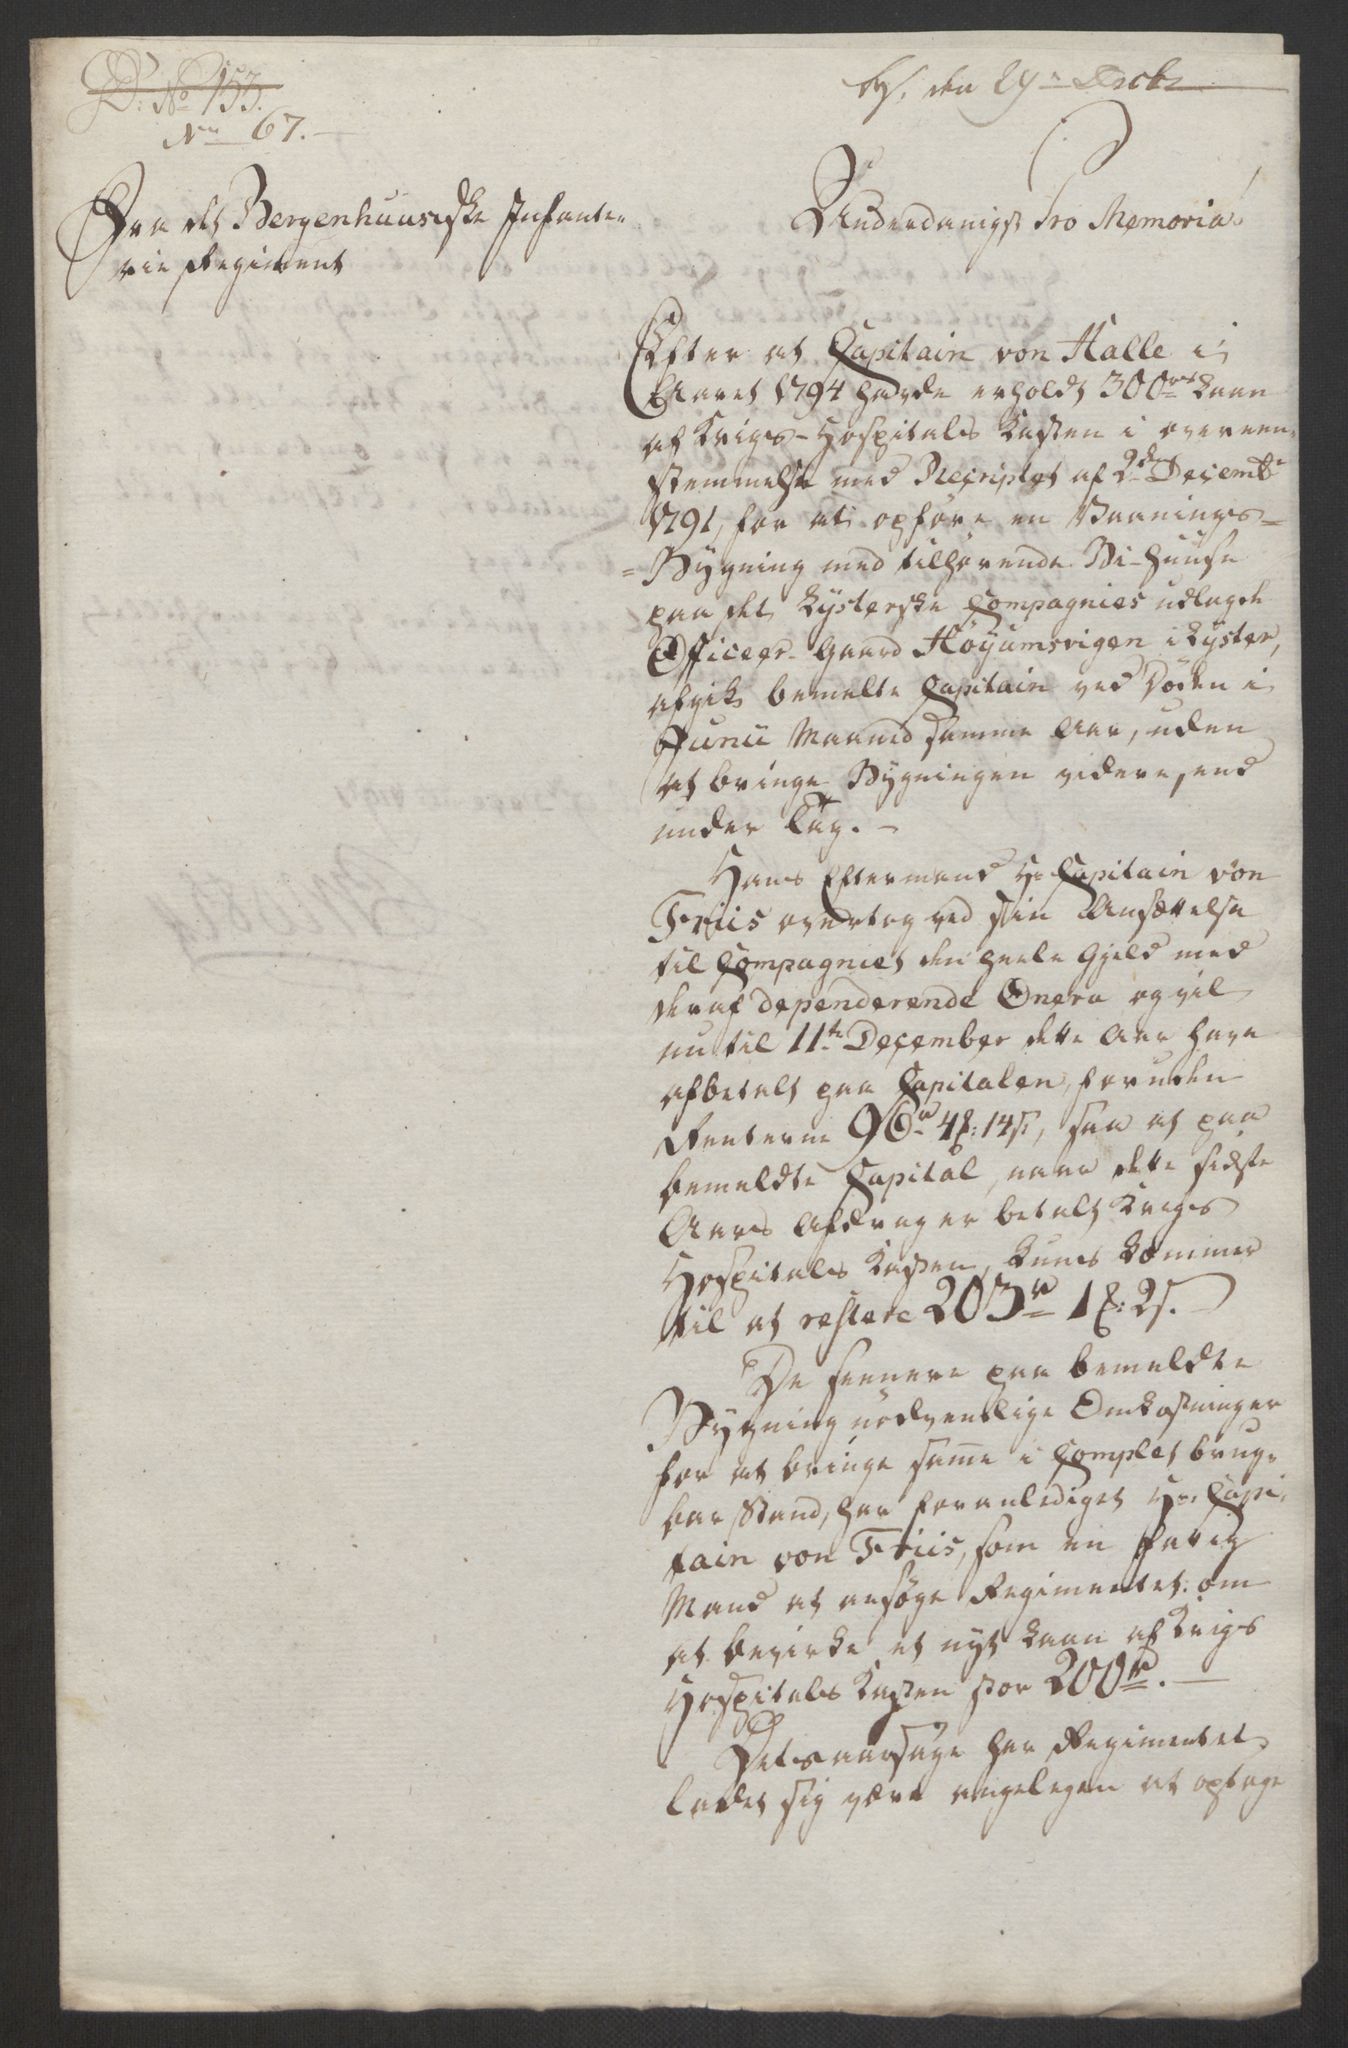 D: No 153.
No 67.
den 29de Decbr
Fra det Bergenhuusiske Infante-
rie Regiment
Underdanigst Pro Memoria!
Efter at Capitain von Halle i
Aaret 1794 havde erholdt 300rd Laan
af Krigs-Hospitals Kassen i overeen-
stemmelse med Rescriptet af 2den Decembr
1791, for at opföre en Vaanings-
-Bygning med tilhörende Bi-Huuse
paa det Lysterske Compagnies udlagde
Officeer-Gaard Höyumsvigen i Lyster,
afgik bemelte Capitain ved Döden i
Junii Maaned samme Aar, uden
at bringe Bygningen videre, end
under Tag.-
Hans Eftermand Hr Capitain von
Friis overtog ved sin Ansættelse
til Compagniet den heele Gjeld med
deraf dependerende Onera og vil
nu til 11te December dette Aar have
afbetalt paa Capitalen, foruden
Renterne 96rd 4ß: 14s, saa at paa
bemeldte Capital, naar dette sidste
Aars Afdrag er betalt Krigs
Hospitals Kassen, kuns kommer
til at restere 203rd 1ß: 2s.
De seenere paa bemeldte
Bygning nödvendlige Omkostninger
for at bringe samme i Complet brug-
bar Stand, har foranlediget Hr. Capi-
tain von Friis, som en
Mand at ansöge Regimentet om
at bevirke et nyt Laan af Krigs
Hospitals Kassen stor 200rd.-
Det aarsage har Regimentet
ladet sig være angelegen at optage